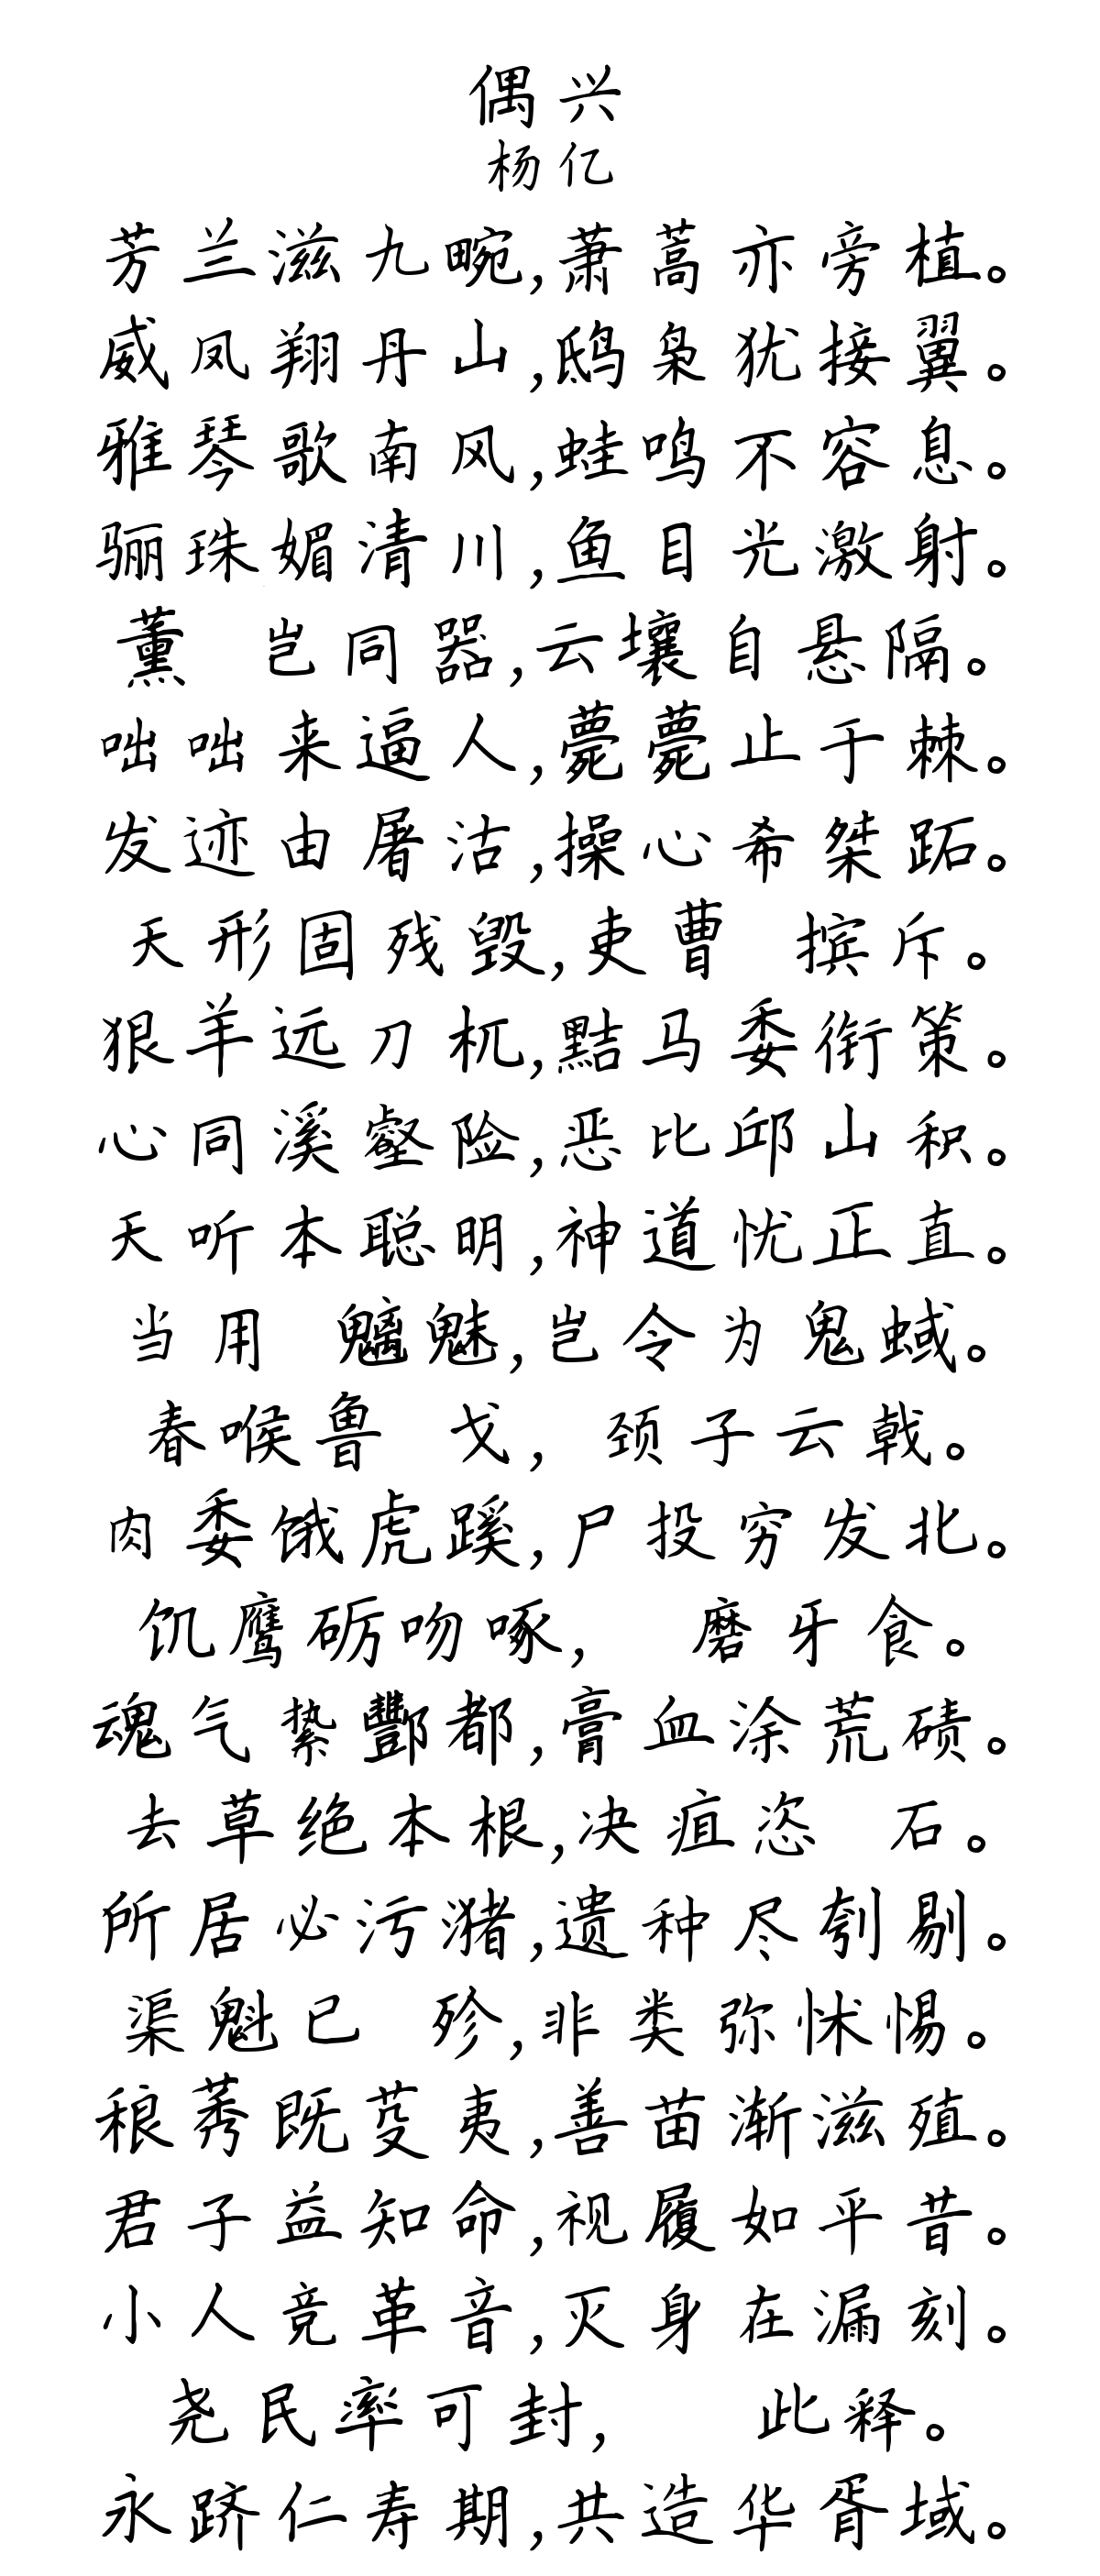 偶兴
杨亿
芳兰滋九畹,萧蒿亦旁植。
威凤翔丹山,鸱枭犹接翼。
雅琴歌南风,蛙鸣不容息。
骊珠媚清川,鱼目光激射。
薰 岂同器,云壤自悬隔。
咄咄来逼人,薨薨止于棘。
发迹由屠沽,操心希桀跖。
天形固残毁,吏曹 摈斥。
狠羊远刀杌,黠马委衔策。
心同溪壑险,恶比邱山积。
天听本聪明,神道忧正直。
当用 魑魅,岂令为鬼蜮。
春喉鲁 戈,颈子云戟。
肉委饿虎蹊,尸投穷发北。
饥鹰砺吻啄, 磨牙食。
魂气絷酆都,膏血涂荒碛。
去草绝本根,决疽恣 石。
所居必污潴,遗种尽刳剔。
渠魁已 殄,非类弥怵惕。
稂莠既芟夷,善苗渐滋殖。
君子益知命,视履如平昔。
小人竞革音,灭身在漏刻。
尧民率可封, 此释。
永跻仁寿期,共造华胥域。